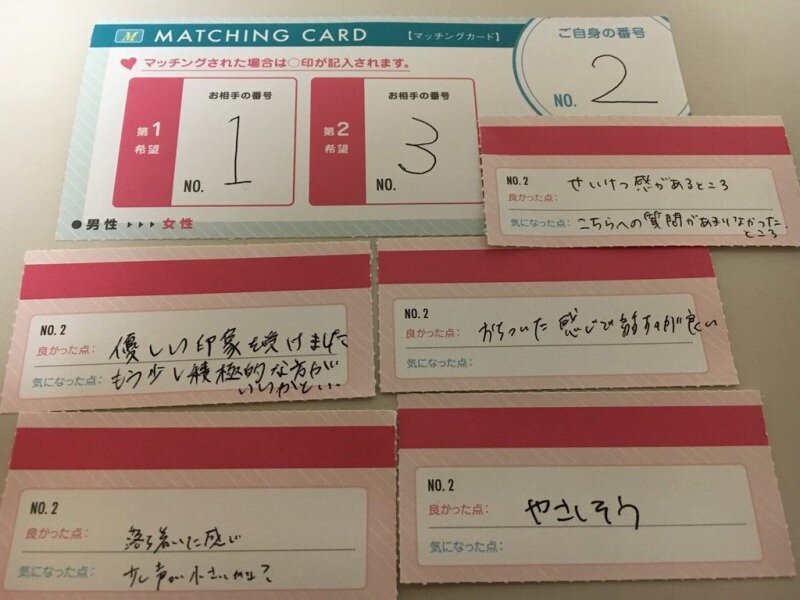 M MATCHING CARD 【マッチングカード】
マッチングされた場合は○印が記入されます。
ご自身の番号
NO. 2
第1希望
お相手の番号
NO. 1
第2希望
お相手の番号
NO. 3
●男性 ▸▸▸ 女性
NO.2
良かった点: せいけつ感があるところ
気になった点: こちらへの質問があまりなかった
ところ
NO.2
良かった点: 優しい印象を受けました
気になった点: もう少し積極的な方が
いいかと…
NO.2
良かった点: おちついた感じで話すのが良い
気になった点:
NO.2
良かった点: 落ち着いた感じ
気になった点: 少し声が小さいかな?
NO.2
良かった点: やさしそう
気になった点: